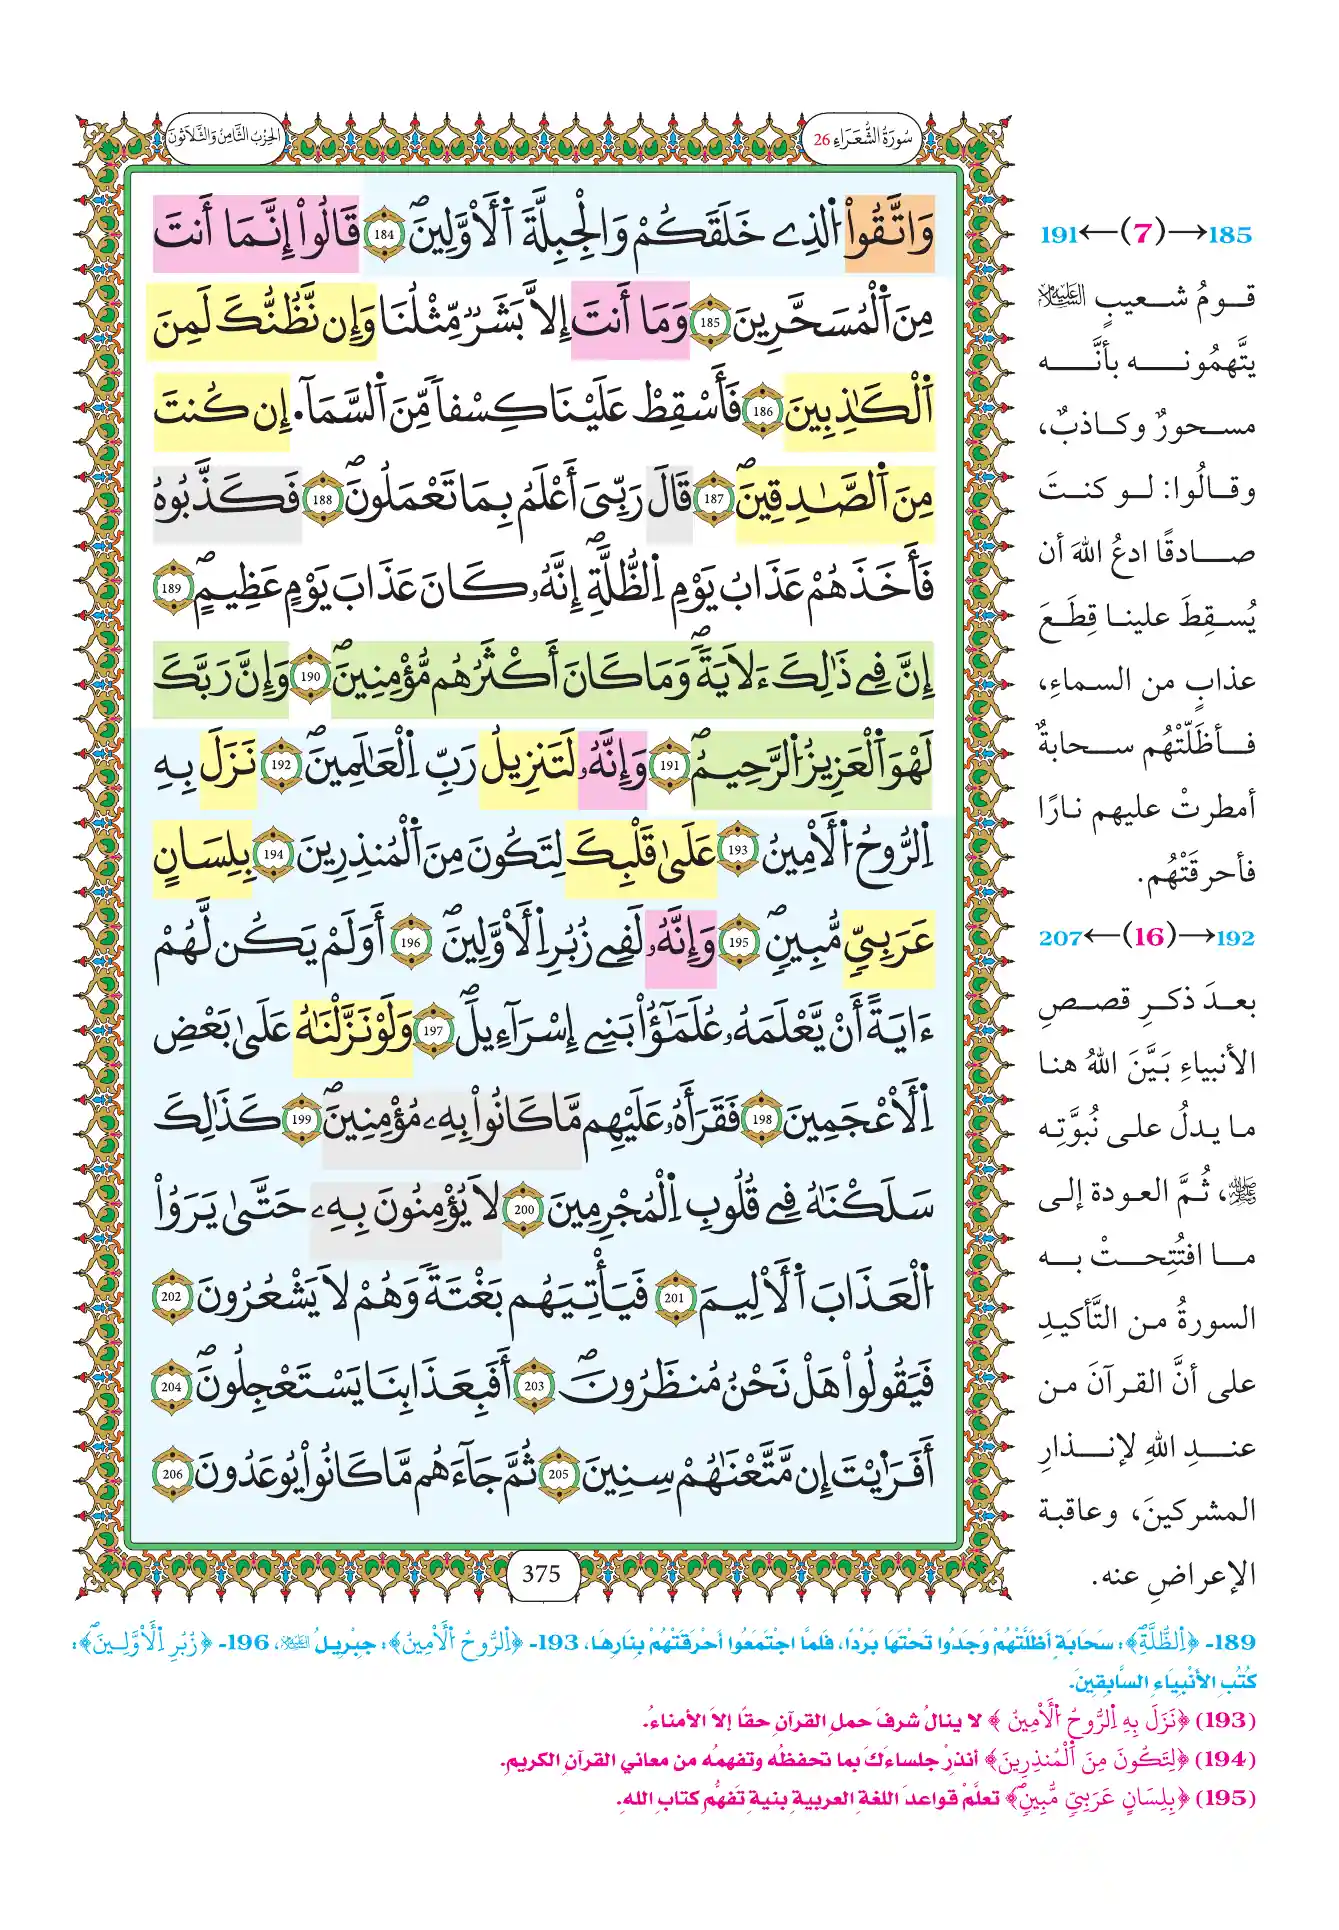 سُورَةُ الشُّعَرَاءِ 26
الحِزْبُ الثَّامِنُ وَالثَّلَاثُونَ
وَاتَّقُواْ اُلذِے خَلَقَكُمْ وَالْجِبِلَّةَ اَ۬لَاوَّلِينَۖ 184 قَالُواْ إِنَّمَا أَنتَ
مِنَ اَ۬لْمُسَحَّرِينَ 185 وَمَا أَنتَ إِلاَّ بَشَرٞ مِّثْلُنَا وَإِن نَّظُنُّكَ لَمِنَ
اَ۬لْكَٰذِبِينَ 186 فَأَسْقِطْ عَلَيْنَا كِسْفاٗ مِّنَ اَ۬لسَّمَآءِ ان كُنتَ
مِنَ اَ۬لصَّٰدِقِينَۖ 187 قَالَ رَبِّيَ أَعْلَمُ بِمَا تَعْمَلُونَۖ 188 فَكَذَّبُوهُ
فَأَخَذَهُمْ عَذَابُ يَوْمِ اِ۬لظُّلَّةِۖ إِنَّهُۥ كَانَ عَذَابَ يَوْمٍ عَظِيمٍۖ 189
إِنَّ فِے ذَٰلِكَ ءَلَايَةٗۖ وَمَا كَانَ أَكْثَرُهُم مُّؤْمِنِينَۖ 190 وَإِنَّ رَبَّكَ
لَهْوَ اَ۬لْعَزِيزُ اُ۬لرَّحِيمُۖ 191 وَإِنَّهُۥ لَتَنزِيلُ رَبِّ اِ۬لْعَٰلَمِينَۖ 192 نَزَلَ بِهِ
اِ۬لرُّوحُ اُ۬لَامِينُ 193 عَلَىٰ قَلْبِكَ لِتَكُونَ مِنَ اَ۬لْمُنذِرِينَ 194 بِلِسَانٍ
عَرَبِيّٖ مُّبِينٖۖ 195 وَإِنَّهُۥ لَفِے زُبُرِ اِ۬لَاوَّلِينَۖ 196 أَوَلَمْ يَكُن لَّهُمْ
ءَايَةً أَنْ يَّعْلَمَهُۥ عُلَمَٰٓؤُاْ بَنِے إِسْرَآءِيلَۖ 197 وَلَوْ نَزَّلْنَٰهُ عَلَىٰ بَعْضِ
اِ۬لَاعْجَمِينَ 198 فَقَرَأَهُۥ عَلَيْهِم مَّا كَانُواْ بِهِۦ مُؤْمِنِينَۖ 199 كَذَٰلِكَ
سَلَكْنَٰهُ فِے قُلُوبِ اِ۬لْمُجْرِمِينَ 200 لَا يُؤْمِنُونَ بِهِۦ حَتَّىٰ يَرَوُاْ
اُ۬لْعَذَابَ اَ۬لَالِيمَ 201 فَيَأْتِيَهُم بَغْتَةٗ وَهُمْ لَا يَشْعُرُونَ 202
فَيَقُولُواْ هَلْ نَحْنُ مُنظَرُونَۖ 203 أَفَبِعَذَابِنَا يَسْتَعْجِلُونَۖ 204
أَفَرَٰيْتَ إِن مَّتَّعْنَٰهُمْ سِنِينَ 205 ثُمَّ جَآءَهُم مَّا كَانُواْ يُوعَدُونَ 206
375
185→(7)←191
قومُ شعيبٍ عليه السلام
يتَّهمُونه بأنَّه
مسحورٌ وكاذبٌ،
وقالُوا: لو كنتَ
صادقًا ادعُ اللهَ أن
يُسقِطَ علينا قِطَعَ
عذابٍ من السماءِ،
فأظَلّتْهُم سحابةٌ
أمطرتْ عليهم نارًا
فأحرقَتْهُم.
192→(16)←207
بعدَ ذكرِ قصصِ
الأنبياءِ بَيَّنَ اللهُ هنا
ما يدلُ على نُبوَّتِه
ﷺ، ثُمَّ العودة إلى
ما افتُتِحتْ به
السورةُ من التَّأكيدِ
على أنَّ القرآنَ من
عندِ اللهِ لإنذارِ
المشركينَ، وعاقبة
الإعراضِ عنه.
189- ﴿اِ۬لظُّلَّةِۖ﴾: سَحَابَةٍ أَظَلَّتْهُمْ وَجَدُوا تَحْتَهَا بَرْدًا، فَلَمَّا اجْتَمَعُوا أَحْرَقَتْهُمْ بِنَارِهَا، 193- ﴿اِ۬لرُّوحُ اُ۬لَامِينُ﴾: جِبْرِيلُ عليه السلام، 196- ﴿زُبُرِ اِ۬لَاوَّلِينَۖ﴾:
كُتُبِ الأَنْبِيَاءِ السَّابِقِينَ.
(193) ﴿نَزَلَ بِهِ اِ۬لرُّوحُ اُ۬لَامِينُ﴾ لا ينالُ شرفَ حملِ القرآنِ حقًا إلاَ الأمناءُ.
(194) ﴿لِتَكُونَ مِنَ اَ۬لْمُنذِرِينَ﴾ أنذرْ جلساءَكَ بما تحفظُه وتفهمُه من معاني القرآنِ الكريمِ.
(195) ﴿بِلِسَانٍ عَرَبِيّٖ مُّبِينٖۖ﴾ تعلَّمْ قواعدَ اللغةِ العربيةِ بنيةِ تَفهُّمِ كتابِ اللهِ.